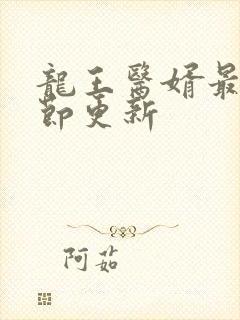 龍王醫婿最
節更新
阿茹